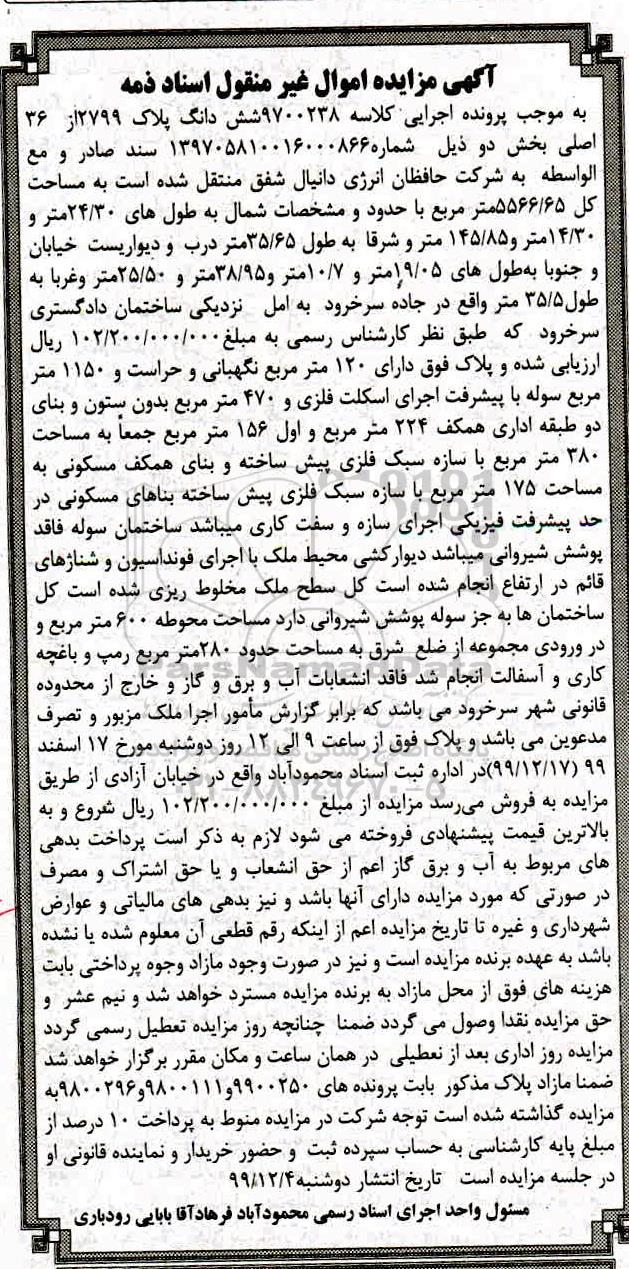 آگهی مزایده اموال غیر منقول اسناد ذمه
به موجب پرونده اجرایی کلاسه ۹۷۰۰۲۳۸شش دانگ پلاک ۲۷۹۹از ۳۶
اصلی بخش دو ذیل شماره۱۳۹۷۰۵۸۱۰۰۱۶۰۰۰۸۶۶ سند صادر و مع
الواسطه به شرکت حافظان انرژی دانیال شفق منتقل شده است به مساحت
کل ۵۵۶۶/۶۵متر مربع با حدود و مشخصات شمال به طول های ۲۴/۳۰متر و
۱۴/۳۰متر و۱۴۵/۸۵ متر و شرقا به طول ۳۵/۶۵متر درب و دیواریست خیابان
و جنوبا به‌طول های ۱۹/۰۵متر و ۱۰/۷متر و۳۸/۹۵متر و ۲۵/۵۰متر وغربا به
طول۳۵/۵ متر واقع در جاده سرخرود به امل نزدیکی ساختمان دادگستری
سرخرود که طبق نظر کارشناس رسمی به مبلغ۱۰۲/۲۰۰/۰۰۰/۰۰۰ ریال
ارزیابی شده و پلاک فوق دارای ۱۲۰ متر مربع نگهبانی و حراست و ۱۱۵۰ متر
مربع سوله با پیشرفت اجرای اسکلت فلزی و ۴۷۰ متر مربع بدون ستون و بنای
دو طبقه اداری همکف ۲۲۴ متر مربع و اول ۱۵۶ متر مربع جمعاً به مساحت
۳۸۰ متر مربع با سازه سبک فلزی پیش ساخته و بنای همکف مسکونی به
مساحت ۱۷۵ متر مربع با سازه سبک فلزی پیش ساخته بناهای مسکونی در
حد پیشرفت فیزیکی اجرای سازه و سفت کاری میباشد ساختمان سوله فاقد
پوشش شیروانی میباشد دیوارکشی محیط ملک با اجرای فونداسیون و شناژهای
قائم در ارتفاع انجام شده است کل سطح ملک مخلوط ریزی شده است کل
ساختمان ها به جز سوله پوشش شیروانی دارد مساحت محوطه ۶۰۰ متر مربع و
در ورودی مجموعه از ضلع شرق به مساحت حدود ۲۸۰متر مربع رمپ و باغچه
کاری و آسفالت انجام شد فاقد انشعابات آب و برق و گاز و خارج از محدوده
قانونی شهر سرخرود می باشد که برابر گزارش مأمور اجرا ملک مزبور و تصرف
مدعوین می باشد و پلاک فوق از ساعت ۹ الی ۱۲ روز دوشنبه مورخ ۱۷ اسفند
۹۹ (۹۹/۱۲/۱۷)در اداره ثبت اسناد محمودآباد واقع در خیابان آزادی از طریق
مزایده به فروش می‌رسد مزایده از مبلغ ۱۰۲/۲۰۰/۰۰۰/۰۰۰ ریال شروع و به
بالاترین قیمت پیشنهادی فروخته می شود لازم به ذکر است پرداخت بدهی
های مربوط به آب و برق گاز اعم از حق انشعاب و یا حق اشتراک و مصرف
در صورتی که مورد مزایده دارای آنها باشد و نیز بدهی های مالیاتی و عوارض
شهرداری و غیره تا تاریخ مزایده اعم از اینکه رقم قطعی آن معلوم شده یا نشده
باشد به عهده برنده مزایده است و نیز در صورت وجود مازاد وجوه پرداختی بابت
هزینه های فوق از محل مازاد به برنده مزایده مسترد خواهد شد و نیم عشر و
حق مزایده نقدا وصول می گردد ضمنا چنانچه روز مزایده تعطیل رسمی گردد
مزایده روز اداری بعد از تعطیلی در همان ساعت و مکان مقرر برگزار خواهد شد
ضمنا مازاد پلاک مذکور بابت پرونده های ۹۹۰۰۲۵۰و۹۸۰۰۱۱۱و۹۸۰۰۲۹۶به
مزایده گذاشته شده است توجه شرکت در مزایده منوط به پرداخت ۱۰ درصد از
مبلغ پایه کارشناسی به حساب سپرده ثبت و حضور خریدار و نماینده قانونی او
در جلسه مزایده است تاریخ انتشار دوشنبه۹۹/۱۲/۴
مسئول واحد اجرای اسناد رسمی محمودآباد فرهادآقا بابایی رودباری
ParsNamadData
۰۲۱-۸۸۳۴۹۶۷۰-۵